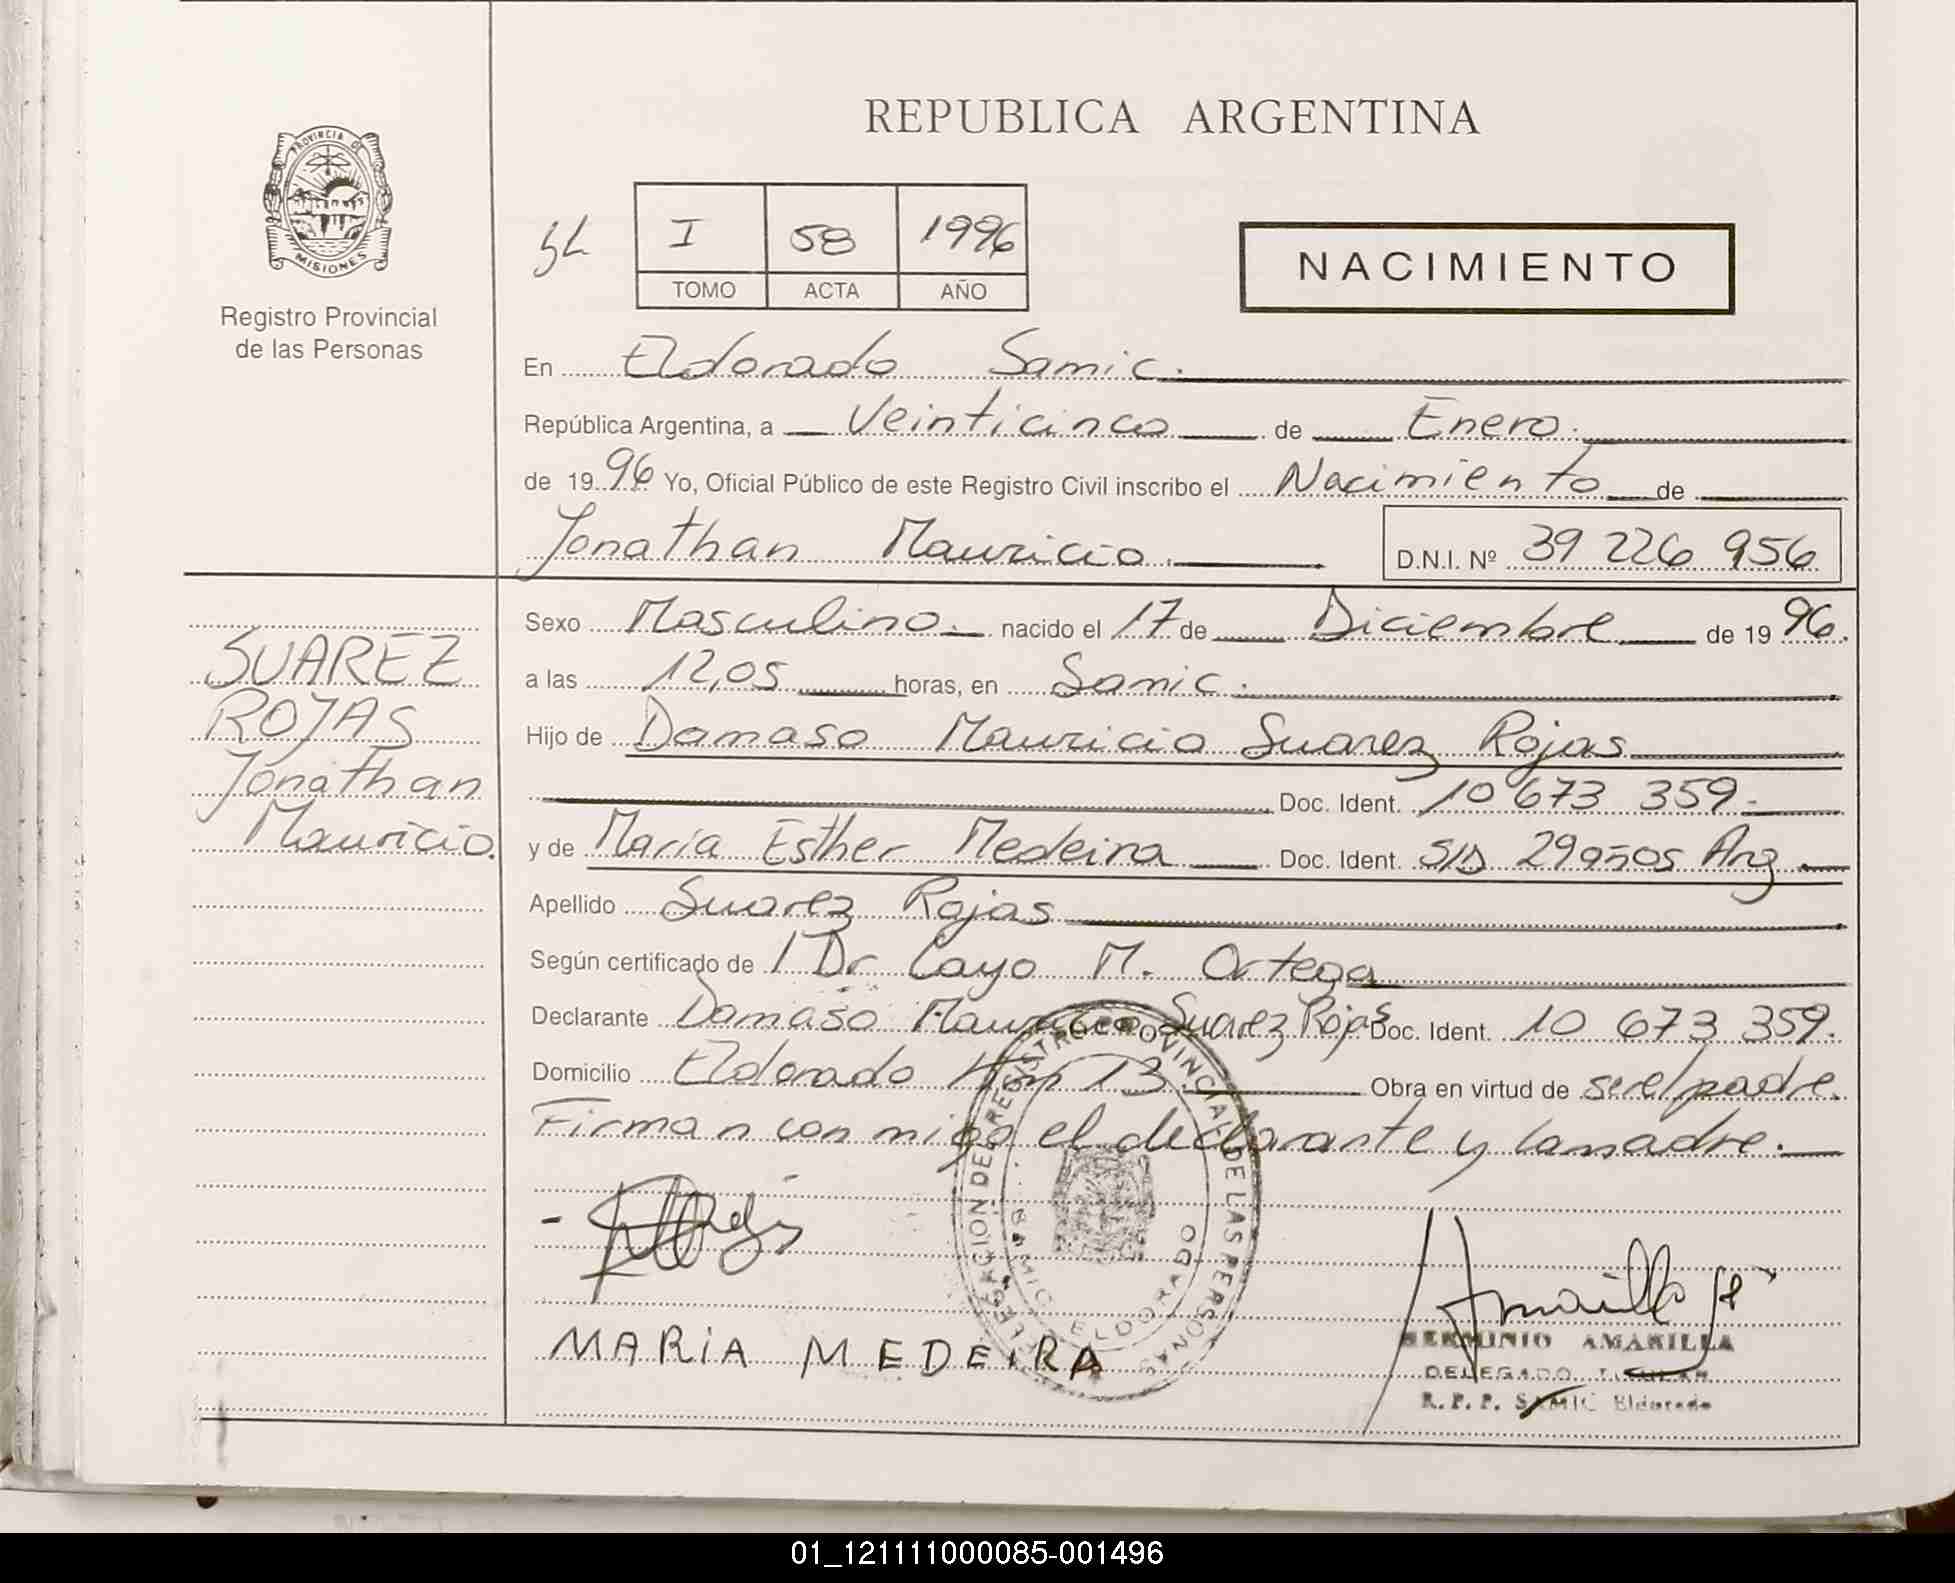 REPUBLICA ARGENTINA
PROVINCIA DE
MISIONES
Registro Provincial
de las Personas
I 58 1996
TOMO ACTA AÑO
NACIMIENTO
En Eldorado Samic.
República Argentina, a Veinticinco de Enero.
de 1996 Yo, Oficial Público de este Registro Civil inscribo el Nacimiento de
Jonathan Mauricio. D.N.I. Nº 39 226 956
SUAREZ
ROJAS
Jonathan
Mauricio.
Sexo Masculino. nacido el 17 de Diciembre de 1996.
a las 12,05 horas, en Samic.
Hijo de Damaso Mauricio Suarez Rojas
Doc. Ident. 10 673 359.
y de Maria Esther Medeira Doc. Ident. S/D 29 años Arg.
Apellido Suarez Rojas
Según certificado de / Dr Cayo M. Ortega
Declarante Damaso Mauricio Suarez Rojas Doc. Ident. 10 673 359.
Domicilio Eldorado Km 13 Obra en virtud de ser el padre.
Firman con migo el declarante y la madre.
DELEGACION DEL REGISTRO PROVINCIAL DE LAS PERSONAS
SAMIC ELDORADO
MARiA MEDEiRA
Amarilla
HERMINIO AMARILLA
DELEGADO TITULAR
R. P. P. SAMIC Eldorado
01_121111000085-001496